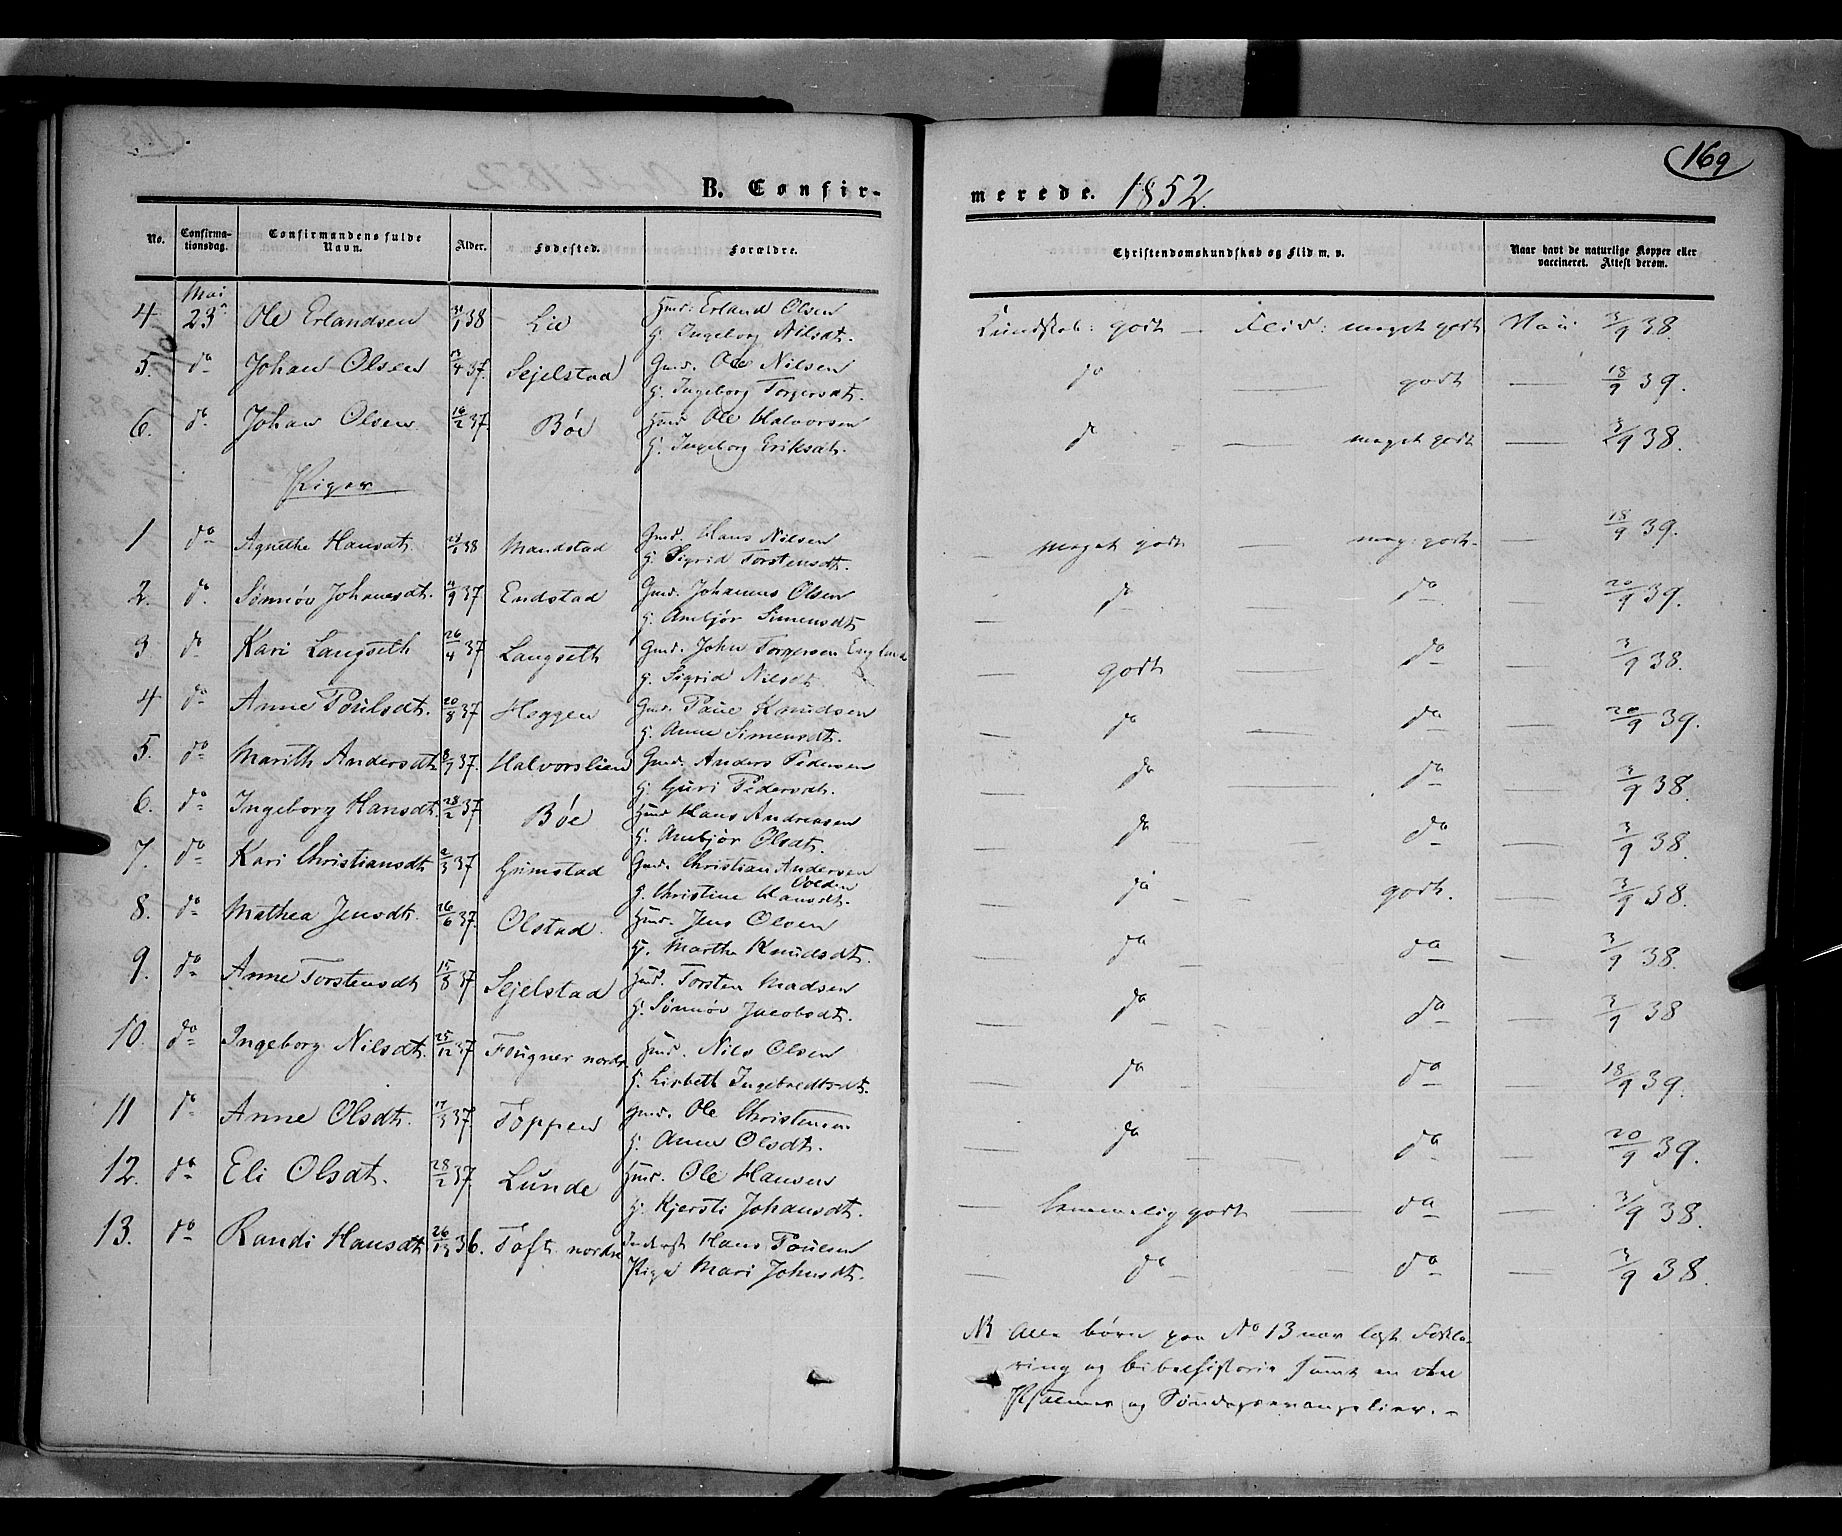 169
B. Confirmerede. 1852.
No. Confirmationsdag. Confirmandens fulde Navn. Alder. Fødested. Forældre. Christendomskundskab og Flid m. v. Naar havt de naturlige Kopper eller vaccineret. Attest derom.
Mai
4. 23de Ole Erlandsen 38 Lie Huusm. Erland Olsen Kundskab: godt — Flid: meget godt 3/9 38.
H. Ingeborg Nilsdt.
5. do Johan Olsen 37. Sejelstad Gmd. Ole Nilsen do — godt — 18/9 39.
H. Ingeborg Torgersdt.
6. do Johan Olsen 16/2 37. Bøe Hmd Ole Halvorsen do — meget godt — 3/9 38.
H. Ingeborg Eriksdt.
Piger
1 do Agnethe Hansdt. 38 Mandstad Gmd. Hans Nilsen — meget godt — meg. godt — 18/9 39.
H. Sigrid Torstensdt.
2. do Sønnøv Johanesdt. 37 Endstad Gmd. Johannes Olsen — do — do — 20/9 39.
H. Anbjør Simensdt.
3 do Kari Langseth 26/4 37 Langseth Gmd. John Torgersen godt — do 3/9 38.
H. Sigrid Nilsdt.
4 do Anne Poulsdt. 20/8 37 Heggen Gmd. Paul Knudsen — do — do — 20/9 39.
H. Anne Simensdt.
5. do Marith Andersdt. 37. Halvorslien Gmd. Anders Pedersen — do — do — 3/9 38.
H. Guri Pedersdt.
6. do Ingeborg Hansdt. 28/2 37 Bøe Hmd Hans Andreasen — do — do — 3/9 38.
H. Anbjør Olsdt.
7. do Kari Christiansdt 37 Grimstad Gmd. Christian Andersen — do — godt. — 3/9 38.
H. Christine Hansdt.
8. do Mathea Jensdt. 26/6 37. Olstad Hmd. Jens Olsen do — do — 3/9 38.
H. Marthe Knudsdt.
9. do Anne Torstensdt 15/8 37 Sejelstad Hmd. Torsten Madsen — do — do — 3/9 38
H. Sønnøv Jacobsdt.
10. do Ingeborg Nilsdt. 25/12 37 Fougner nordr. Hmd. Nils Olsen — do — do — 18/9 39.
H. Lisbeth Ingebredtsdt.
11 do Anne Olsdt. 17/3 37 Toppen Gmd. Ole Christensen — do — do — 20/9 39.
H. Anne Olsdt.
12. do Eli Olsdt. 28/2 37. Lunde Hmd. Ole Hansen — temmelig godt — do — 3/9 38.
H. Kjersti Johansdt.
13. do Randi Hansdt 26/12 36. Toft nordre Inderst Hans Poulsen — do — do — 3/9 38.
Pige Mari Johnsdt.
NB Alle børn paa No 13 nær læst Forkla-
ring og bibelhistorie samt en Deel
Psalmer og Søndagsevangelier. –